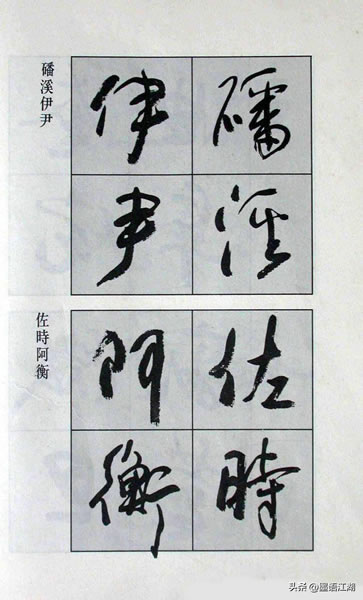 磻溪
伊尹
佐時
阿衡
磻溪伊尹
佐時阿衡
头条 @國语江湖